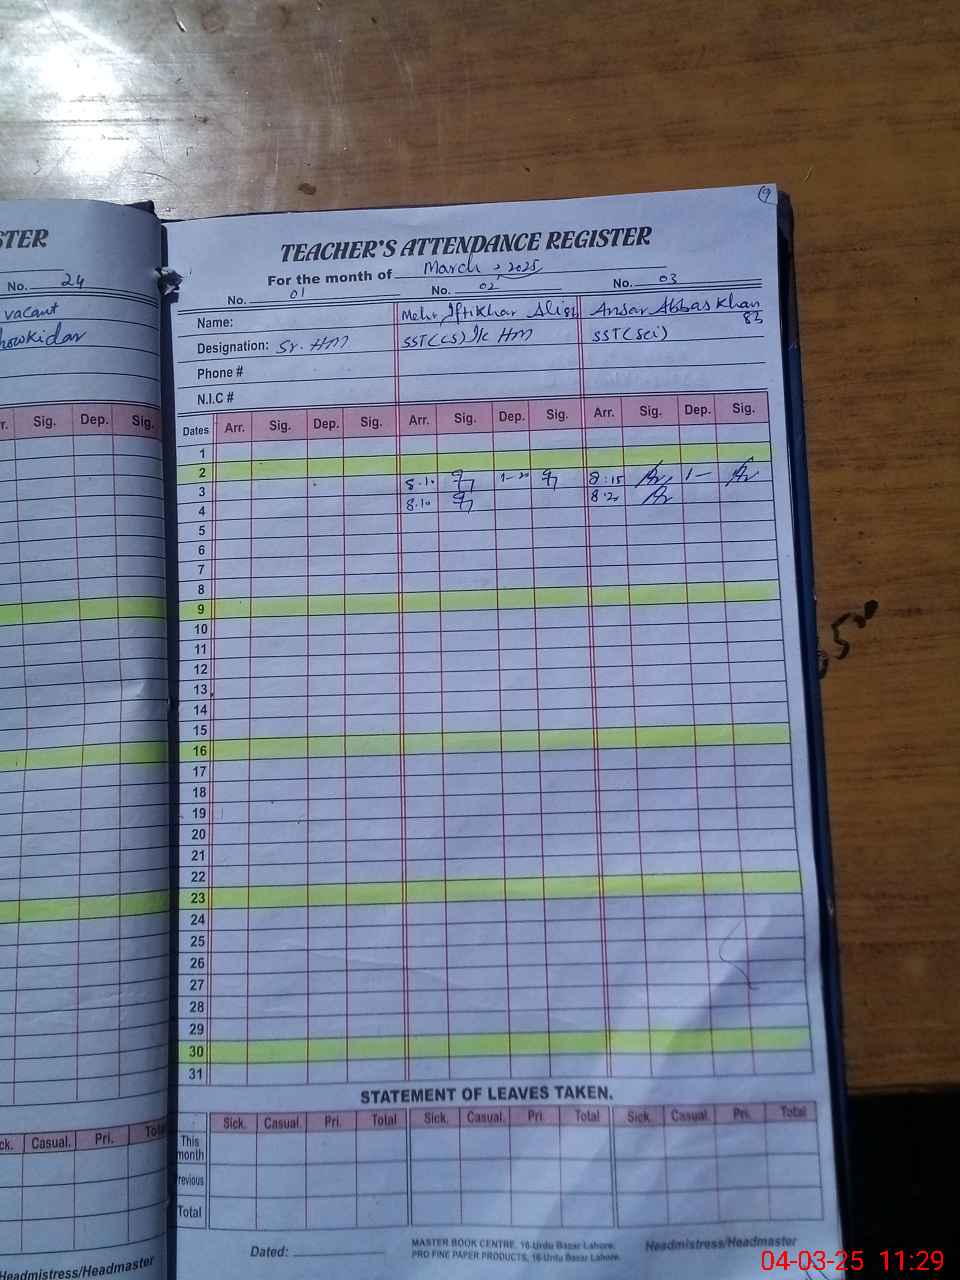 STER
No. 24
vacant
howkidar
r. Sig. Dep. Sig.
ck. Casual. Pri. Total
Headmistress/Headmaster
9
TEACHER'S ATTENDANCE REGISTER
For the month of March, 2025
No. 01 No. 02 No. 03
Name: Mehr Iftikhar Ali Ansar Abbas Khan
83
Designation: Sr. HM SST(CS) I/c HM SST(Sci)
Phone #
N.I.C #
Dates Arr. Sig. Dep. Sig. Arr. Sig. Dep. Sig. Arr. Sig. Dep. Sig.
1
2
3 8.10 1-20 8:15 1-
4 8.10 8.20
5
6
7
8
9
10
11
12
13
14
15
16
17
18
19
20
21
22
23
24
25
26
27
28
29
30
31
STATEMENT OF LEAVES TAKEN.
Sick. Casual. Pri. Total Sick. Casual. Pri. Total Sick. Casual. Pri. Total
This
month
Previous
Total
Dated:
MASTER BOOK CENTRE, 16-Urdu Bazar Lahore.
PRO FINE PAPER PRODUCTS, 16-Urdu Bazar Lahore.
Headmistress/Headmaster
04-03-25 11:29